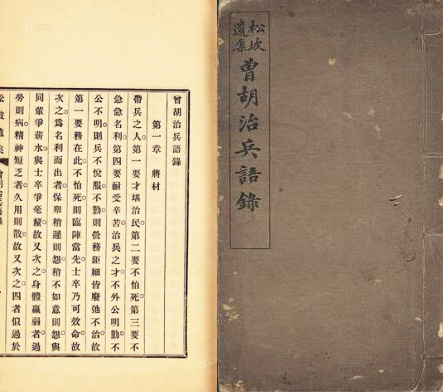 松坡
遺集
曾胡治兵語錄
曾胡治兵語錄
第一章 將材
帶兵之人。第一要才堪治民。第二要不怕死。第三要不
急急名利。第四要耐受辛苦。治兵之才。不外公明勤。不
公不明則兵不悅服。不勤則營務鉅細皆廢弛不治。故
第一要務在此。不怕死則臨陣當先。士卒乃可效命。故
次之。爲名利而出者。保舉稍遲則怨。稍不如意則怨。與
同輩爭薪水。與士卒爭毫釐。故又次之。身體羸弱者。過
勞則病。精神短乏者。久用則散。故又次之。四者似過於